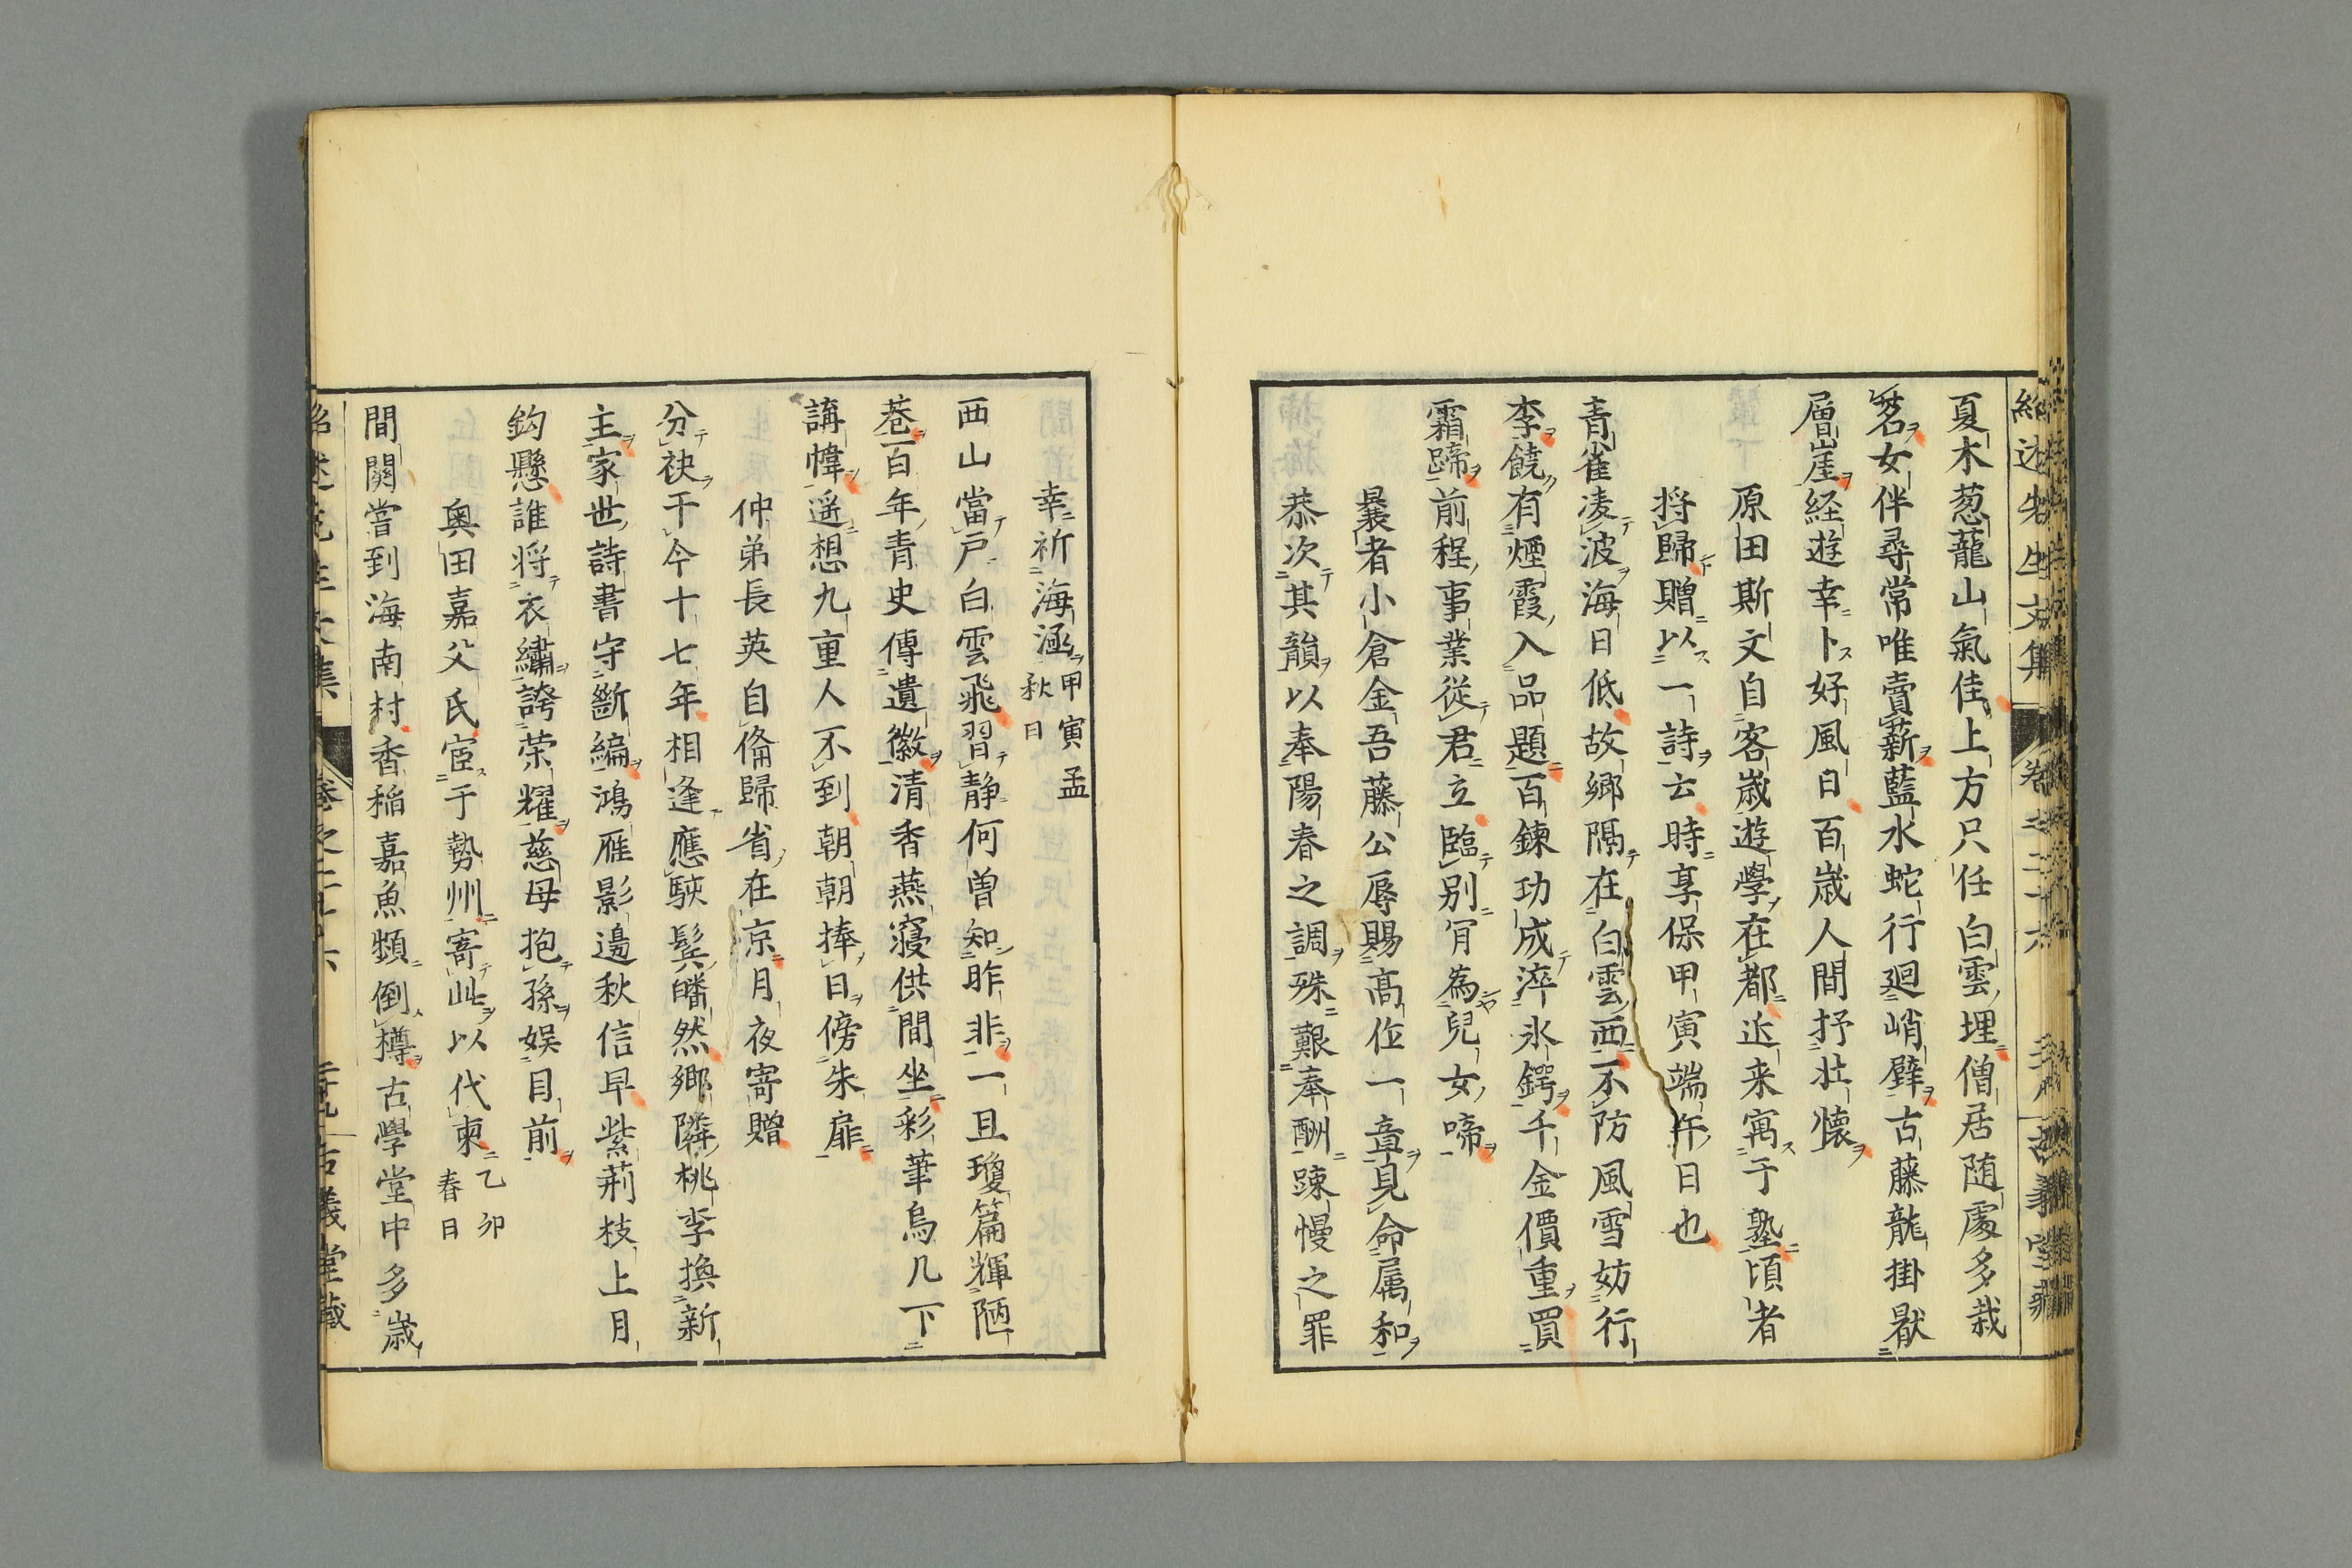 紹述先生文集 卷之二十六 古義堂藏
夏木葱蘢山氣佳上方只任白雲埋僧居随處多栽
茗女伴尋常唯賣薪藍水蛇行廻峭壁古藤龍掛厭
層崖経遊幸卜好風日百歳人間抒壮懐
原田斯文自客歳遊學在都近来寓于塾頃者
将歸贈以一詩云時享保甲寅端午日也
青雀凌波海日低故郷隔在白雲西不防風雪妨行
李饒有煙霞入品題百鍊功成淬氷鍔千金價重買
霜蹄前程事業従君立臨別肎為兒女啼
曩者小倉金吾藤公辱賜高作一章見命属和
恭次其韻以奉陽春之調殊艱奉酬踈慢之罪
幸祈海涵
甲寅孟
秋日
西山當戸白雲飛習静何曽知昨非一旦瓊篇輝陋
巷百年青史傳遺徽清香燕寢供間坐彩筆烏几下
講幃遥想九重人不到朝朝捧日傍朱扉
仲弟長英自俻歸省在京月夜寄贈
分袂于今十七年相逢應駃髩皤然郷隣桃李換新
主家世詩書守斷編鴻雁影邉秋信早紫荊枝上月
鈎懸誰将衣繡誇荣耀慈母抱孫娯目前
奥田嘉父氏宦于勢州寄此以代柬
乙卯
春日
間關嘗到海南村香稲嘉魚頻倒樽古學堂中多歳
紹述先生文集 卷之二十六 古義堂藏